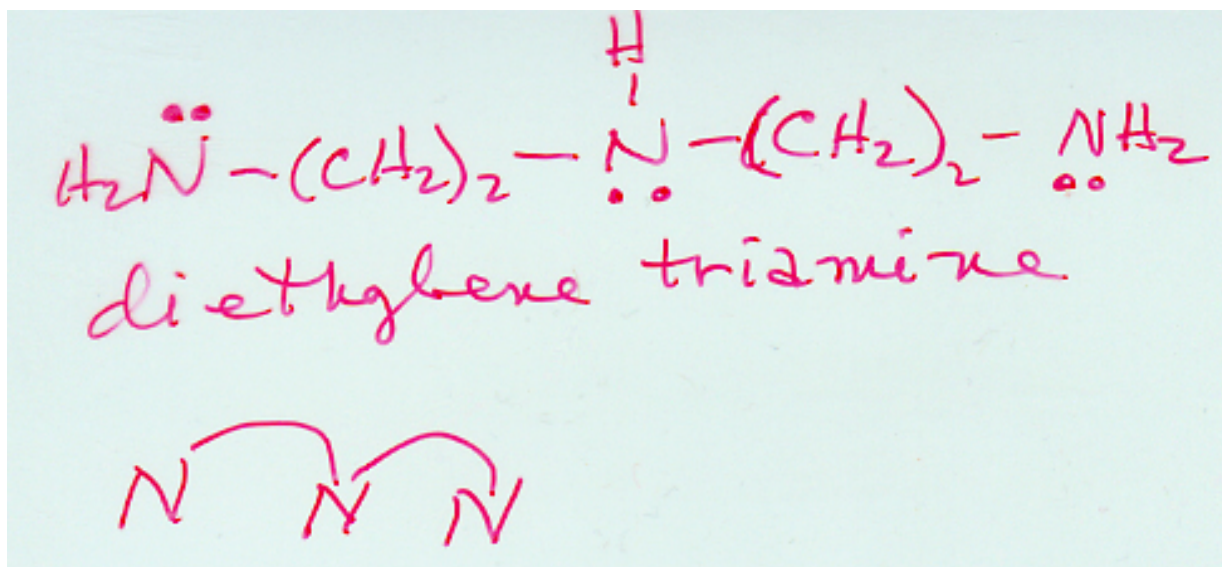 H
H₂N̈-(CH₂)₂-N-(CH₂)₂-NH₂
diethylene triamine
N N N